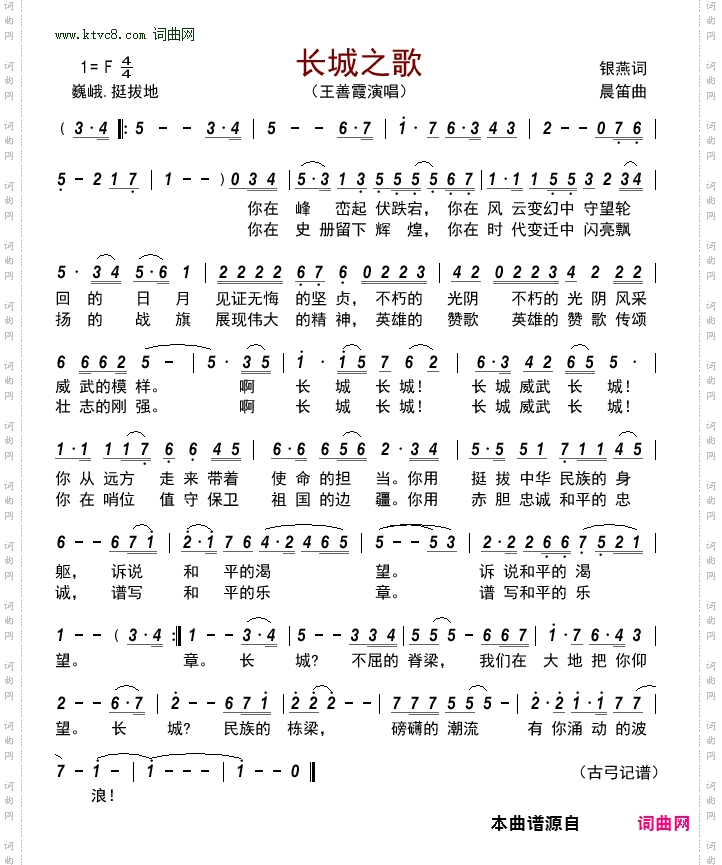 www.ktvc8.com 词曲网
长城之歌
1= F 4/4
银燕词
巍峨.挺拔地
（王善霞演唱）
晨笛曲
( 3·4 ‖: 5 - - 3·4 | 5 - - 6·7 | 1·7 6·3 4 3 | 2 - - 0 7 6 |
5 - 2 1 7 | 1 - - ) 0 3 4 | 5·3 1 3 5 5 5 5 6 7 | 1·1 1 5 5 3 2 3 4 |
你在 峰 峦起 伏跌宕，你在 风 云变幻中 守望轮
你在 史 册留下 辉 煌，你在 时 代变迁中 闪亮飘
5· 3 4 5·6 1 | 2 2 2 2 2 2 6 7 6 0 2 2 3 | 4 2 0 2 2 3 4 2 2 2 |
回 的 日 月 见证无悔 的坚 贞，不朽的 光阴 不朽的 光 阴 风采
扬 的 战 旗 展现伟大 的精 神，英雄的 赞歌 英雄的 赞 歌 传颂
6 6 6 2 5 - | 5· 3 5 | 1· 1 5 7 6 2 | 6·3 4 2 6 5 5· |
威 武的模 样。 啊 长 城 长 城！ 长 城 威武 长 城！
壮 志的刚 强。 啊 长 城 长 城！ 长 城 威武 长 城！
1·1 1 1 7 6 6 4 5 | 6·6 6 5 6 2·3 4 | 5·5 5 1 7 1 1 4 5 |
你 从 远方 走 来 带着 使 命的担 当。你用 挺 拔 中华 民族的 身
你 在 哨位 值 守 保卫 祖 国的边 疆。你用 赤 胆 忠诚 和平的 忠
6 - - 6 7 1 | 2·1 7 6 4·2 4 6 5 | 5 - - 5 3 | 2·2 2 6 6 7 5 2 1 |
躯， 诉说 和 平的渴 望。 诉 说和平的 渴
诚， 谱写 和 平的乐 章。 谱 写和平的 乐
1 - - ( 3·4 :‖ 1 - - 3·4 | 5 - - 3 3 4 | 5 5 5 - 6 6 7 | 1·7 6·4 3 |
望。 章。 长 城？ 不屈的 脊梁， 我们在 大 地 把 你仰
2 - - 6·7 | 2 - - 6 7 1 | 2 2 2 - 7 7 7 | 5 5 5 - - | 2·2 1·1 7 7 |
望。 长 城？ 民族的 栋梁， 磅礴的 潮流 有 你涌 动 的波
7 - 1 - | 1 - - - | 1 - - 0 ‖
（古弓记谱）
浪！
本曲谱源自 词曲网